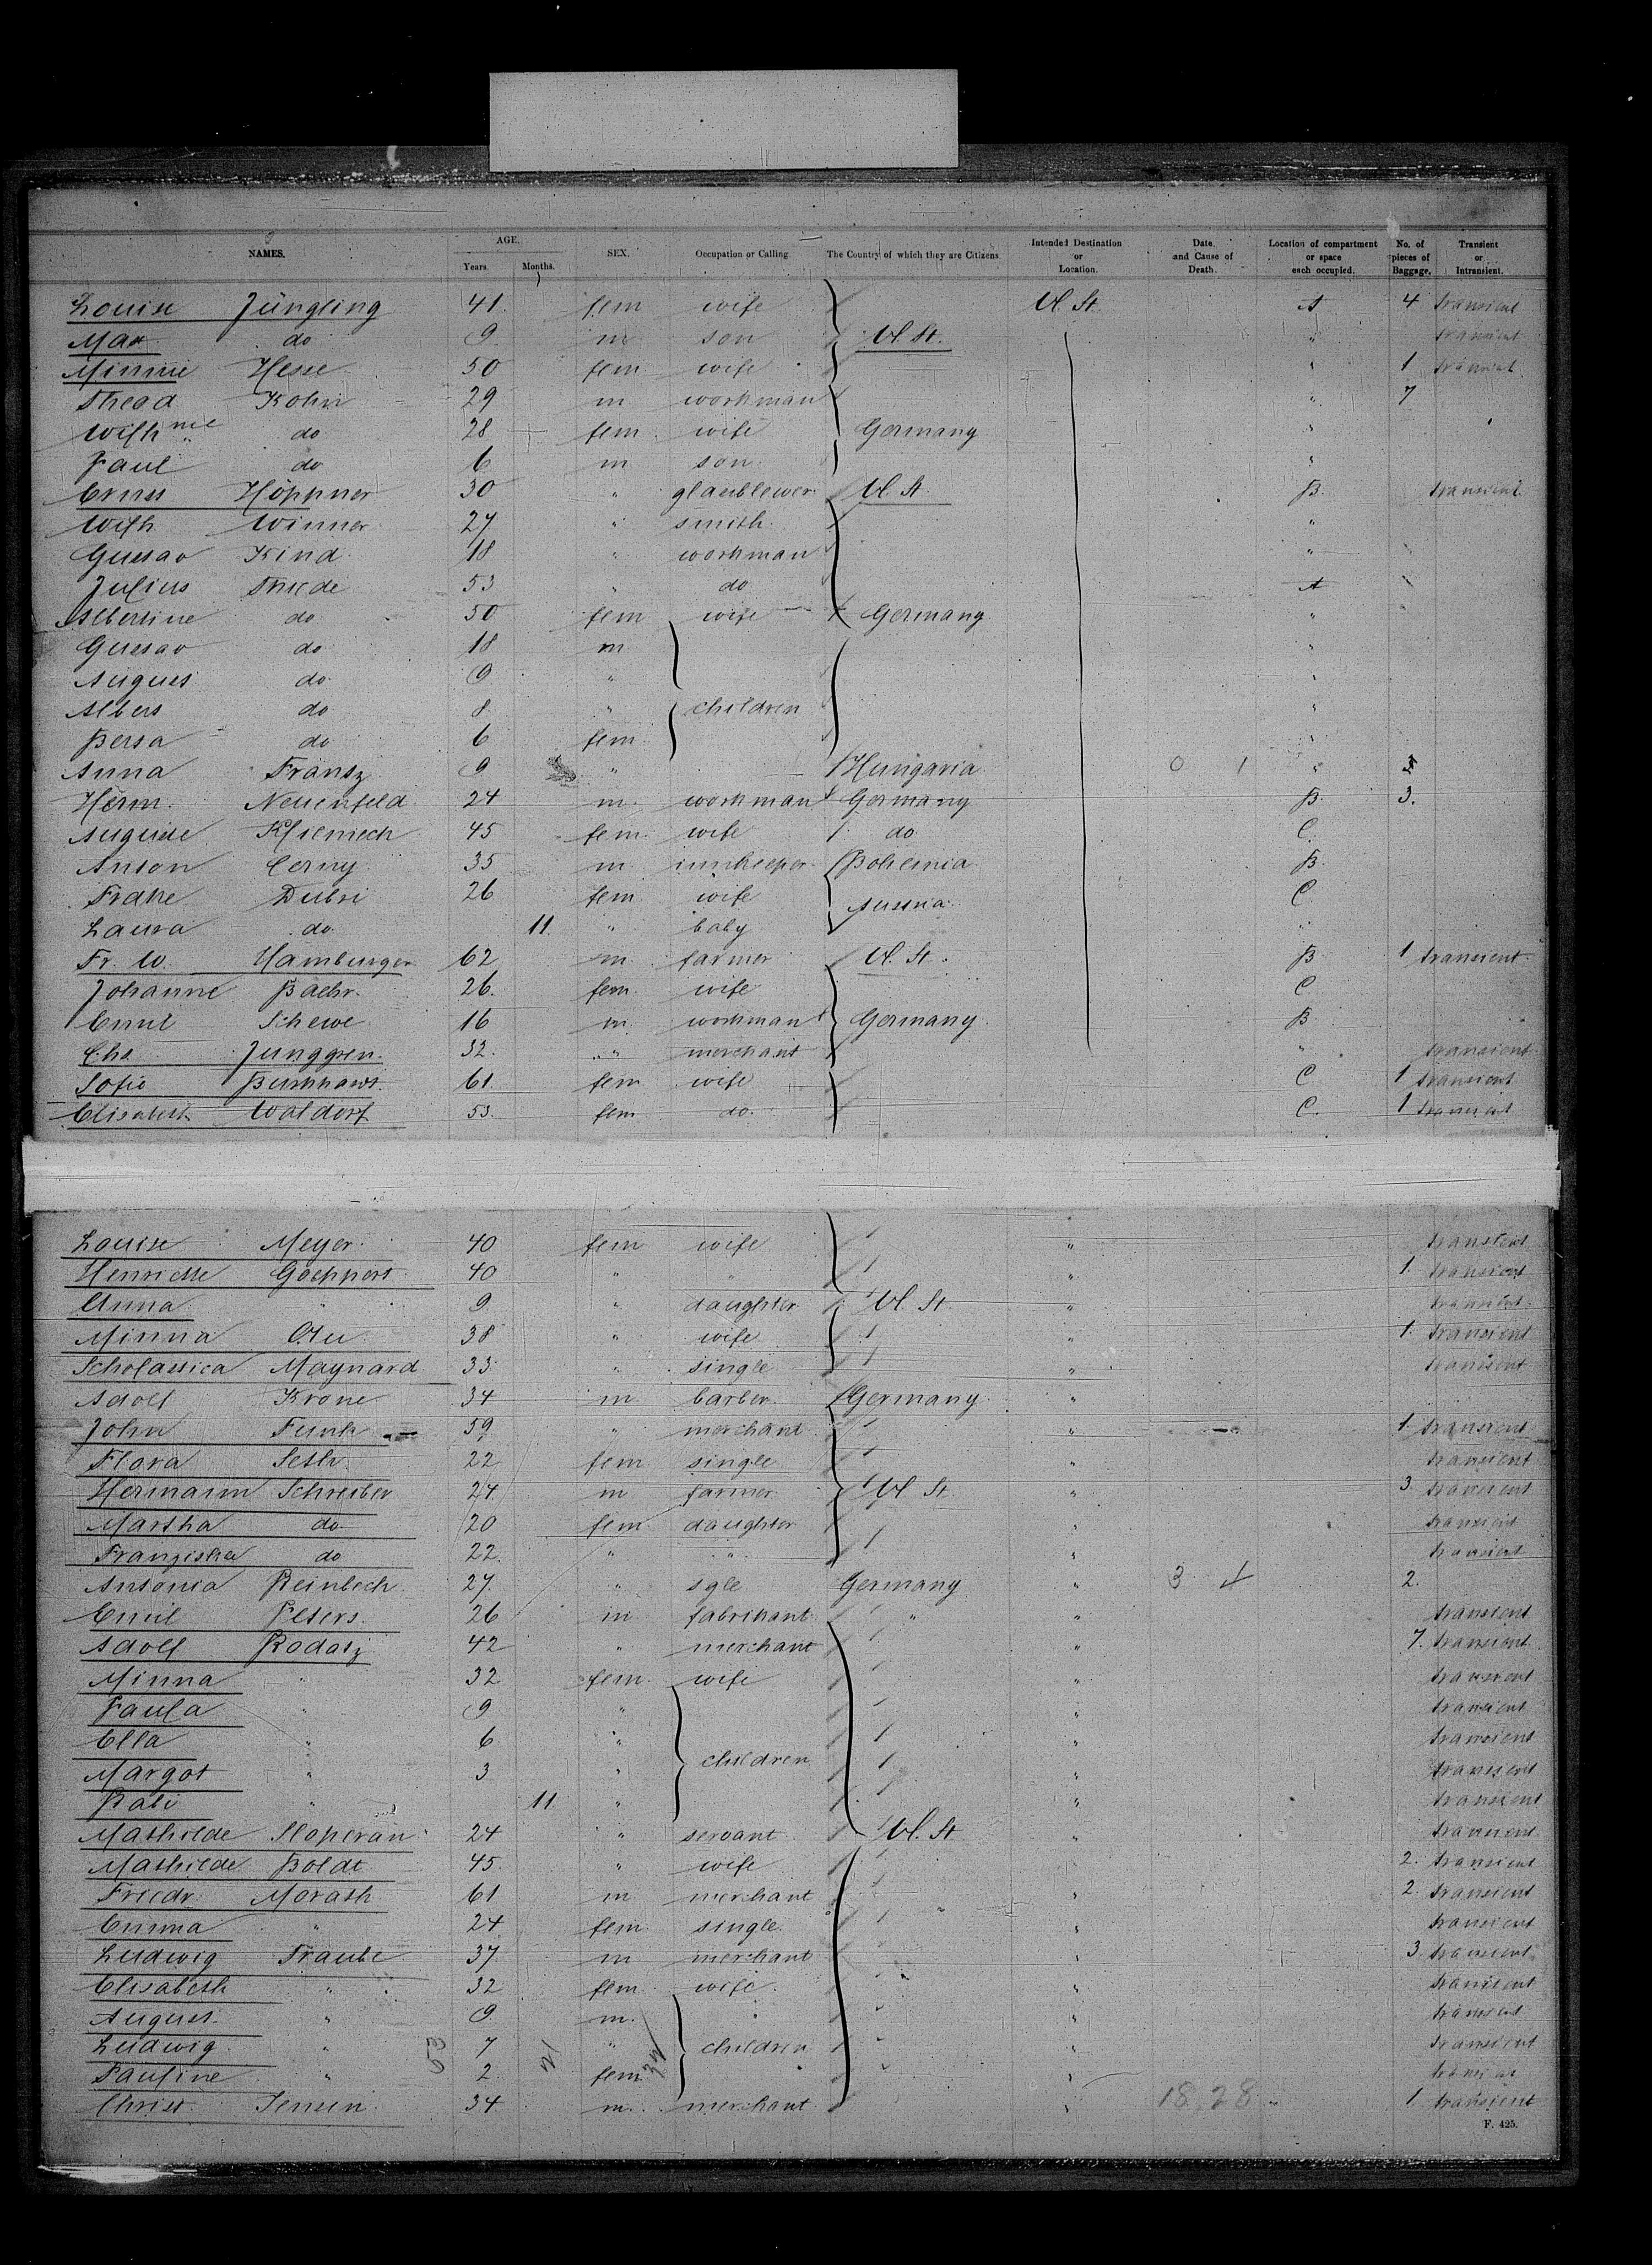 NAMES. AGE. Years. Months. SEX. Occupation or Calling The Country of which they are Citizens. Intended Destination or Location. Date and Cause of Death. Location of compartment or space each occupied. No. of pieces of Baggage. Transient or Intransient.
Louise Jüngling 41. fem wife Ul. St. A 4 transient
Max do 9. m son Ul. St. " transient
Minnie Hesse 50 fem wife " 1 transient
Thead Kohn 29 m workman " 7
Wilhne do 28 fem. wife Germany "
Paul do 6 m son "
Ernst Höppner 30 " Ul. St. B. transient
Wilh Winner 27 " smith "
Gustav Kind 18 " workman "
Julius Thiede 53 " do A
Albertine do 50 fem wife Germany "
Gustav do 18 m "
August do 9 " "
Albert do 8 " children "
Berta do 6 fem "
Anna Frantz 9 " Hungaria 0 1 "
Herm. Neuenfeld 24 m. workman Germany B. 3.
Auguste 45 fem. wife do C.
Anton Cerny 35 m innkeeper Bohemia B.
Dubri 26 fem wife Austria C
Laura do 11. " baby "
Fr. W. Hamburger 62 m. farmer Ul. St. B 1 transient
Johanne Baehr. 26. fem. wife C
Emil Schewe 16 m. workman Germany B
Chs. Junggren. 32. " merchant " transient
Sofie 61. fem wife C 1 transient
Elisabeth Waldorf 53. fem do. C. 1 transient
Louise Meyer 40 fem wife " transient
Henriette Goeppert 40 " " " 1. transient
Anna " 9 " daughter Ul. St " transient
Minna Otu 38 " wife " 1. transient
Scholastica Maynard 33 " single " transient
Adolf Krone 34 m barber Germany "
John Funk 59 " merchant " 1. transient
Flora Seth 22 fem single " transient
Hermann Schreiber 24 m farmer Ul St. " 3. transient
Martha do 20 fem daughter " transient
Franziska do 22. " " " transient
Antonia Reinbech 27. " sgle Germany " 3 4 2.
Emil Peters. 26 m fabrikant " " transient
Adolf Rodatz 42 " merchant " 7. transient
Minna " 32 fem. wife " transient
Paula " 9 " " transient
Ella " 6 " " transient
Margot " 3 " children " transient
" 11. " " transient
Mathilde 24 " servant Ul. St " transient
Mathilde Boldt 45. " wife 2. transient
Friedr. Morath 61 m merchant " 2. transient
Emma " 24 fem single. " transient
Ludwig Traube 37 m merchant " 3. transient
Elisabeth " 32 fem wife. " transient
August. " 9 m. " transient
Ludwig. " 7 " children " transient
Pauline " 2 fem " transient
Christ. Jensen 34 m. merchant " 18 28 1. transient
F. 425.